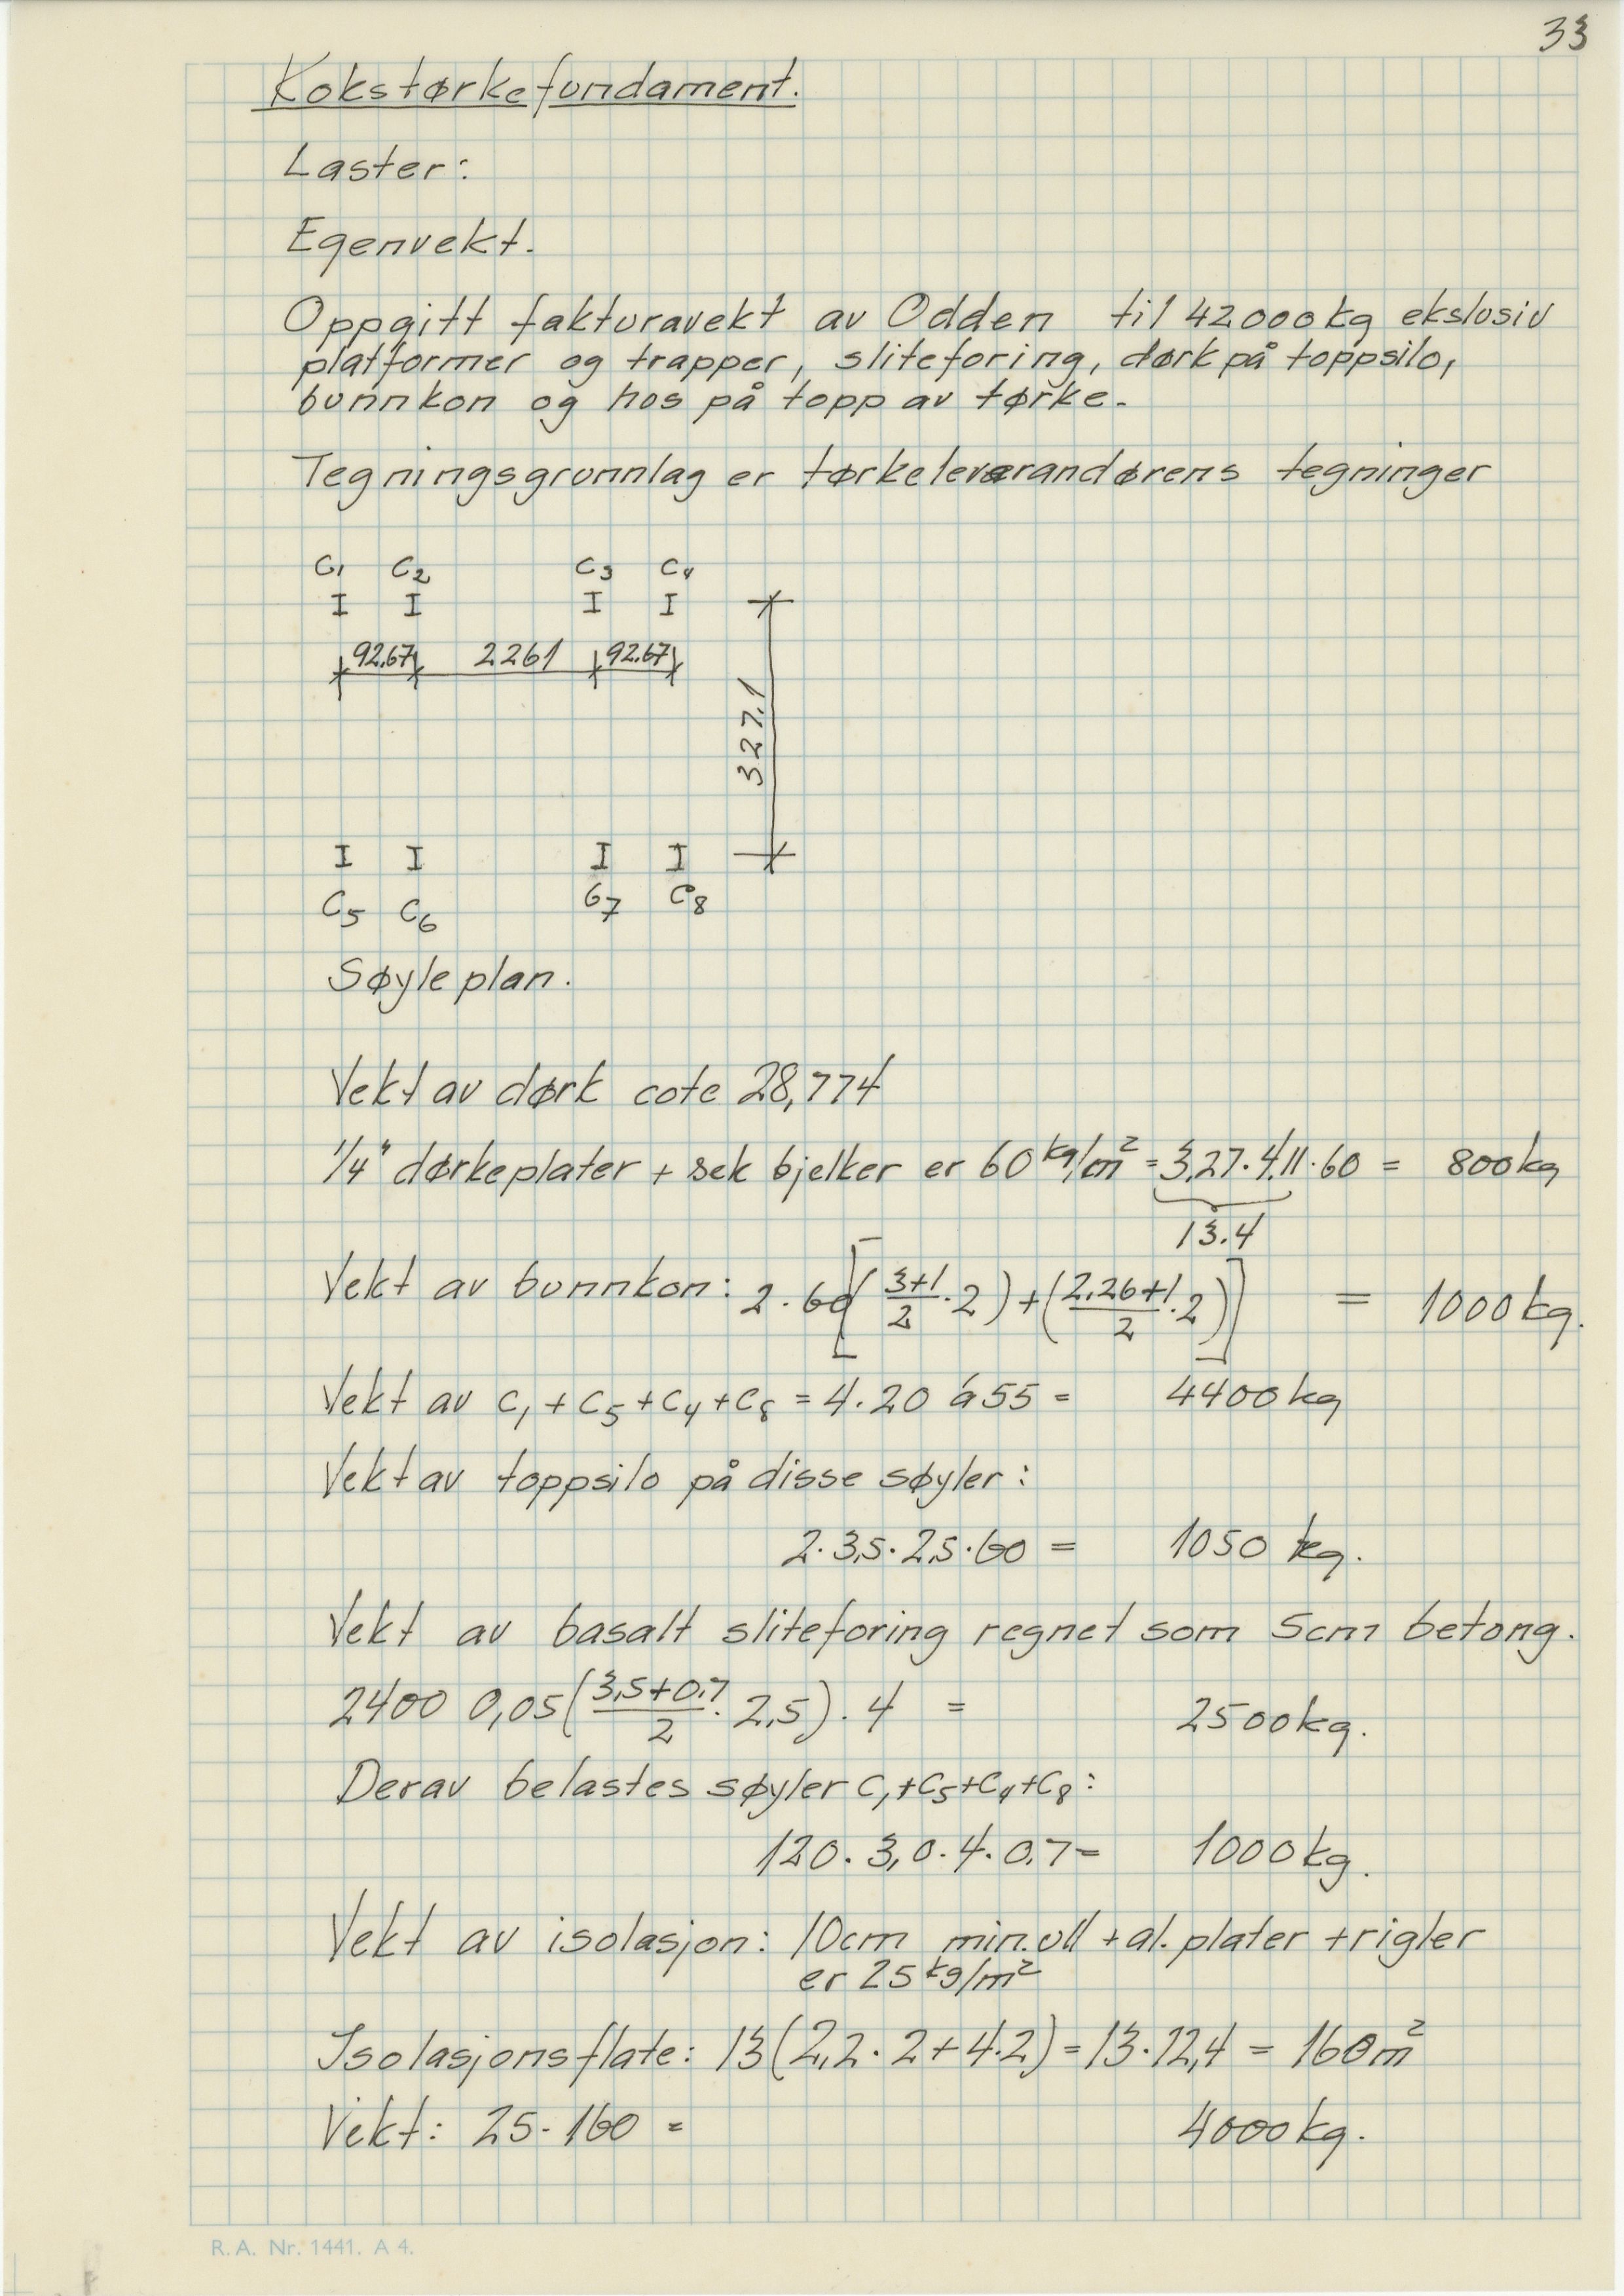 33
Kokstørkefundament.
Laster:
Egenvekt.
Oppgitt fakturavekt av Odden til 42000kg ekslusiv
platformer og trapper, sliteforing, dørk på toppsilo,
bunnkon og hos på topp av tørke.
Tegningsgrunnlag er tørkeleverandørens tegninger
C1 C2 C3 C4
I I I I
92.67 2261 92.67
327.1
I I I I
C5 C6 C7 C8
Søyleplan.
Vekt av dørk cote 28,774
1/4" dørkeplater + sek bjelker er 60 kg/m² = 3,27·4,11·60 = 800kg
13.4
Vekt av bunnkon: 2·60[(3+1/2·2)+(2,26+1/2·2)] = 1000kg.
Vekt av C1+C5+C4+C8 = 4·20 á 55 = 4400kg
Vekt av toppsilo på disse søyler:
2·3,5·2,5·60 = 1050 kg.
Vekt av basalt sliteforing regnet som 5cm betong.
2400 0,05(3,5+0.7/2·2,5)·4 = 2500kg.
Derav belastes søyler C1+C5+C4+C8:
120·3,0·4·0.7= 1000kg.
Vekt av isolasjon: 10cm min.ull + al.plater + rigler
er 25 kg/m²
Isolasjonsflate: 13(2,2·2+4·2)=13·12,4 = 160m²
Vekt: 25·160 = 4000kg.
R.A. Nr. 1441. A 4.